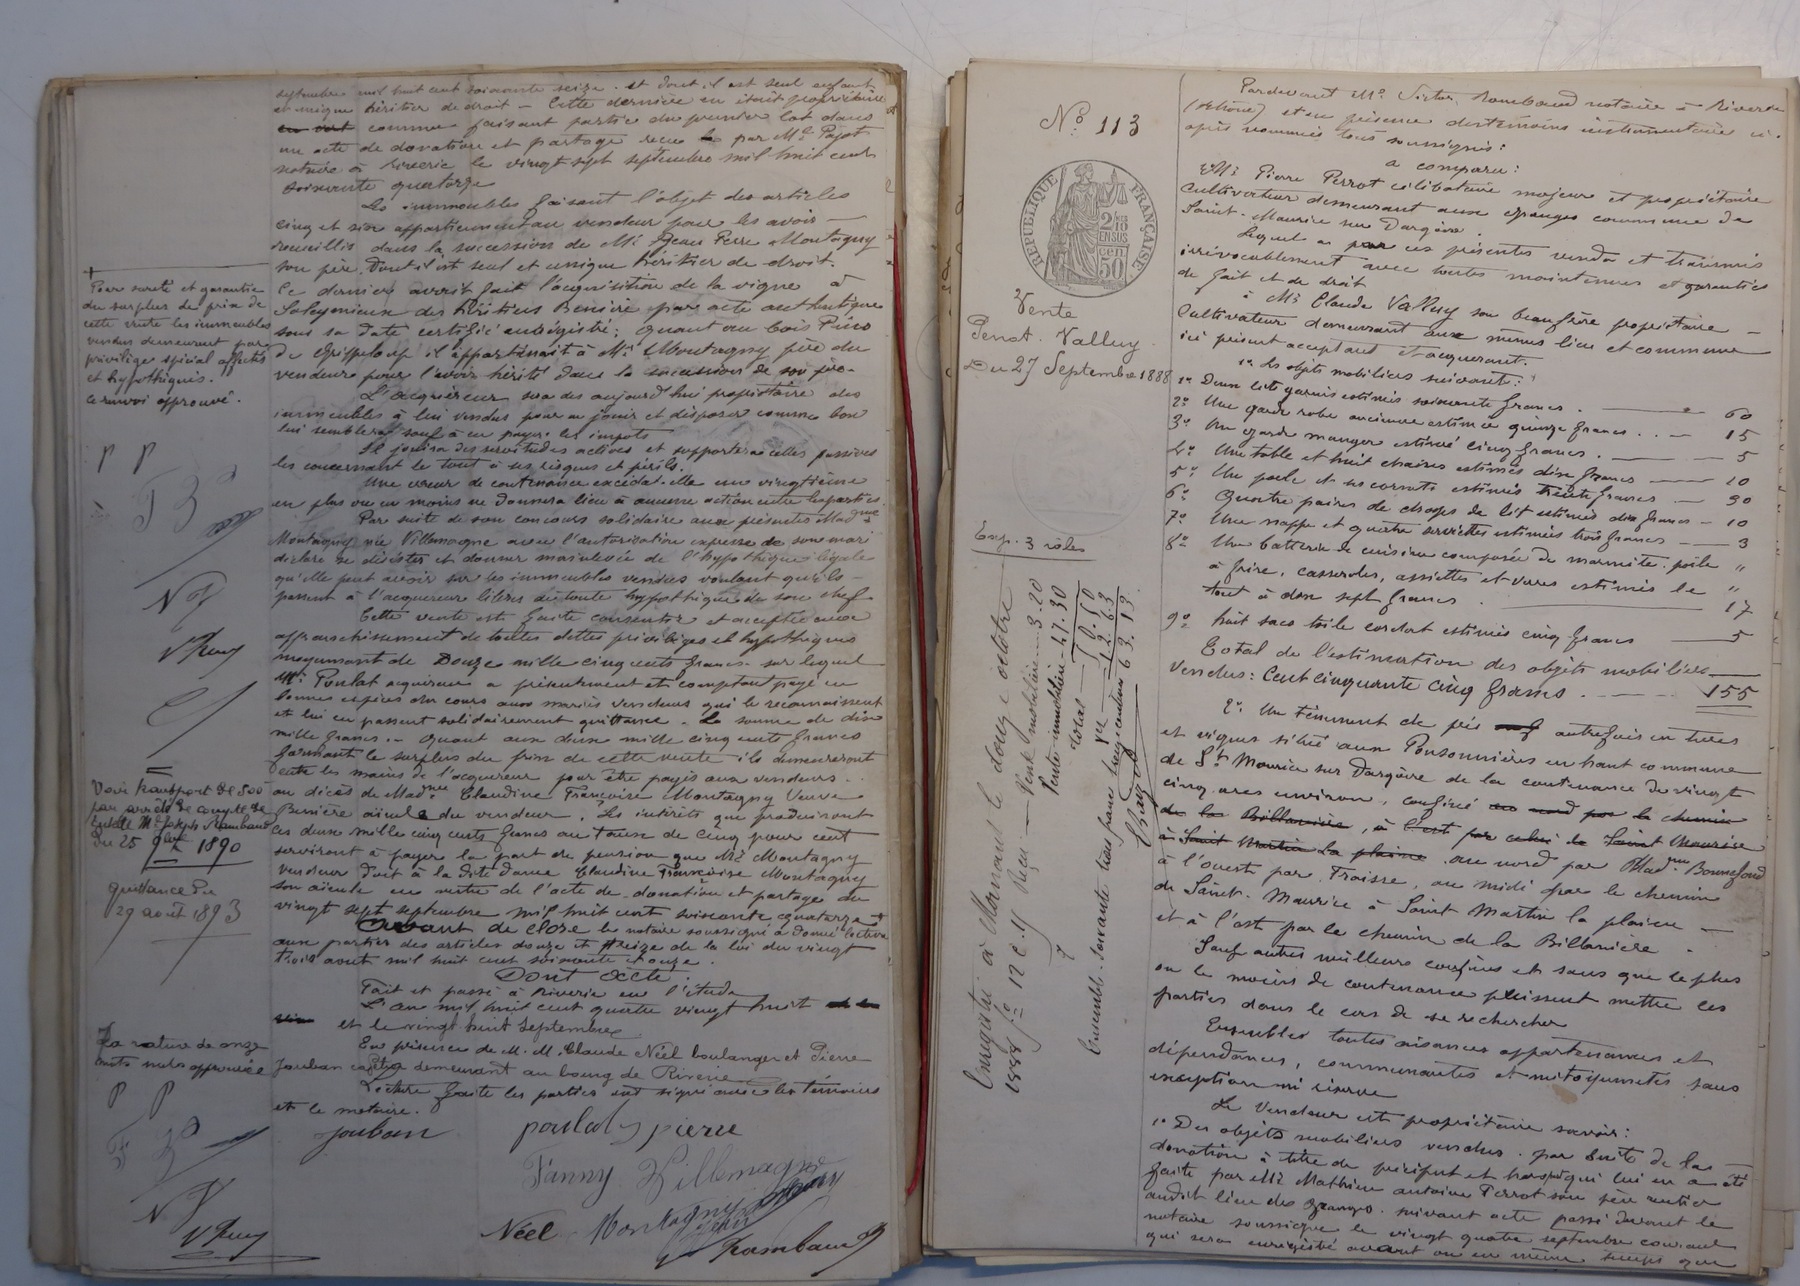 septembre mil huit cent soixante seize. et dont il est seul enfant
et unique héritier de droit – Cette dernière en était propriétaire
comme faisant partie du premier lot dans
un acte de donation et partage reçu par Me Pajot
notaire à Riverie le vingt sept septembre mil huit cent
soixante quatorze
Les immeubles faisant l'objet des articles
cinq et six appartiennent au vendeur pour les avoir –
recueillis dans la succession de Mr Jean Pierre Montagny
son père, dont il est seul et unique héritier de droit.
Ce dernier avait fait l'acquisition de la vigne à
des héritiers Benière par acte authentique
sous sa date certifié enregistré; Quant au bois Pins
de il appartenait à Mr Montagny père du
vendeur pour l'avoir hérité dans la succession de son père –
L'acquéreur sera dès aujourd'hui propriétaire des
immeubles à lui vendus pour en jouir et disposer comme bon
lui semblera sauf à en payer les impots
Il jouira des servitudes actives et supportera celles passives
les concernant le tout à ses risques et périls.
Une erreur de contenance excédat-elle un vingtième
en plus ou en moins ne donnera lieu à aucune action entre les parties.
Par suite de son concours solidaire aux présentes Madme
Montagny née Villemagne avec l'autorisation expresse de son mari
déclare se désister et donner mainlevée de l'hypothèque légale
qu'elle peut avoir sur les immeubles vendus voulant qu'ils –
passent à l'acquéreur libres de toute hypothèque de son chef
Cette vente est faite consentie et acceptée avec
affranchissement de toutes dettes privilèges et hypothèques
moyennant de Douze mille cinq cents francs. sur lequel
Mr Poulat acquéreur a présentement et comptant payé en
bonnes espèces du cours aux mariés vendeurs qui le reconnaissent
et lui en passent solidairement quittance. La somme de dix
mille francs. – Quant aux deux mille cinq cents francs
formant le surplus du prix de cette vente ils demeureront
entre les mains de l'acquéreur pour être payés aux vendeurs . .
au décès de Madme Claudine Françoise Montagny Veuve
Benière aieule du vendeur. Les intérêts que produiront
ces deux mille cinq cents francs au taux de cinq pour cent
serviront à payer la part de pension que Mr Montagny
vendeur doit à la dite dame Claudine Françoise Montagny
son aieule en vertu de l'acte de donation et partage du
vingt sept septembre mil huit cent soixante quatorze +
Avant de clore le notaire soussigné a donné lecture
aux parties des articles douze et treize de la loi du vingt
trois aout mil huit cent soixante et onze.
Dont acte.
Fait et passé à Riverie en l'étude
L'an mil huit cent quatre vingt huit
et le vingt huit septembre
En présence de M. M. Claude Néel boulanger et Pierre
Jouban demeurant au bourg de Riverie
Lecture faite les parties ont signé avec les témoins
et le notaire.
Jouban
poulat pierre
Fanny Villemagne
Néel
Montagny
Rambaud
+
Pour sureté et garantie
du surplus du prix de
cette vente les immeubles
vendus demeurent par
privilège spécial affectés
et hypothéqués.
Ce renvoi approuvé.
P P
Voir transport de 500
par
Me Joseph Rambaud
du 25 9bre 1890
Quittance du
29 août 1893
La rature de onze
mots nuls approuvée
P P
No 113
RÉPUBLIQUE FRANÇAISE
2/10 EN SUS
50 cen
Vente
Perrot. Valluy.
Du 27 Septembre 1888
Exp. 3 rôles
Enregistré à Mornant le douze octobre
1888 fo 12 c. 11 Reçu — Vente mobilière — 3.20
Vente immobilière — 47.30
total — 50.50
— 12.63
Ensemble soixante trois francs treize centimes 63.13
Pardevant Me Victor Rambaud notaire à Riverie
(Rhône) et en présence des témoins instrumentaires ci-
après nommés tous soussignés:
a comparu:
Mr Pierre Perrot célibataire majeur et propriétaire
Cultivateur demeurant aux granges commune de
Saint-Maurice sur Dargoire.
Lequel a par ces présentes vendu et transmis
irrévocablement avec toutes maintenues et garanties
de fait et de droit
à Mr Claude Valluy son beau frère propriétaire –
Cultivateur demeurant aux mêmes lieu et commune
ici présent acceptant et acquérant.
1o Les objets mobiliers suivants:
1o Deux lits garnis estimés soixante francs . — 60
2o Une garde robe ancienne estimée quinze francs . . — 15
3o Un garde manger estimé cinq francs . — 5
4o Une table et huit chaises estimés dix francs — 10
5o Un poele et ses cornets estimés trente francs — 30
6o Quatre paires de draps de lit estimés dix francs — 10
7o Une nappe et quatre serviettes estimées trois francs — 3
8o Une batterie de cuisine composée de marmite, poële "
à frire, casseroles, assiettes et verres estimés le "
tout à dix sept francs . — 17
9o huit sacs toile cordat estimés cinq francs — 5
Total de l'estimation des objets mobiliers
vendus: Cent cinquante cinq francs . — 155
2o Un tènement de pré autrefois en terres
et vignes situé aux Ponsonnières en haut commune
de St Maurice sur Dargoire de la contenance de vingt
cinq ares environ, confiné au nord par le chemin
de la Billanière, à l'est par celui de Saint Maurice
à Saint Martin la plaine. au nord par Madme Bonnefond
à l'ouest par Fraisse, au midi par le chemin
de Saint-Maurice à Saint Martin la plaine —
et à l'est par le chemin de la Billanière .
Sauf autres meilleurs confins et sans que le plus
ou le moins de contenance puissent mettre les
parties dans le cas de se rechercher
Ensembles toutes aisances appartenances et
dépendances, communautés et mitoyennetés sans
exception ni réserve
Le Vendeur est propriétaire savoir:
1o Des objets mobiliers vendus. par suite de la –
donation à titre de préciput et hors part qui lui en a été
faite par Mr Mathieu antoine Perrot son père rentier
audit lieu des granges. suivant acte passé devant le
notaire soussigné le vingt quatre septembre courant
qui sera enregistré avant ou en même temps que